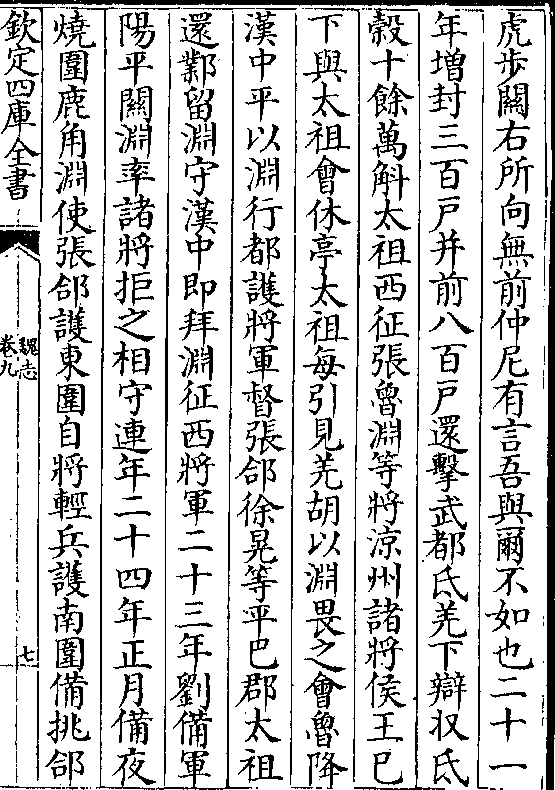 虎歩闗右所向無前仲尼有言吾與爾不如也二十一
年增封三百戸并前八百戸還擊武都氐羌下辯収氐
穀十餘萬斛太祖西征張魯淵等將涼州諸將侯王巳
下與太祖㑹休亭太祖每引見羌胡以淵畏之㑹魯降
漢中平以淵行都護將軍督張郃徐晃等平巴郡太祖
還鄴留淵守漢中即拜淵征西將軍二十三年劉備軍
陽平闗淵率諸將拒之相守連年二十四年正月備夜
燒圍鹿角淵使張郃護東圍自將輕兵護南圍備挑郃
欽定四庫全書
魏志
卷九
七